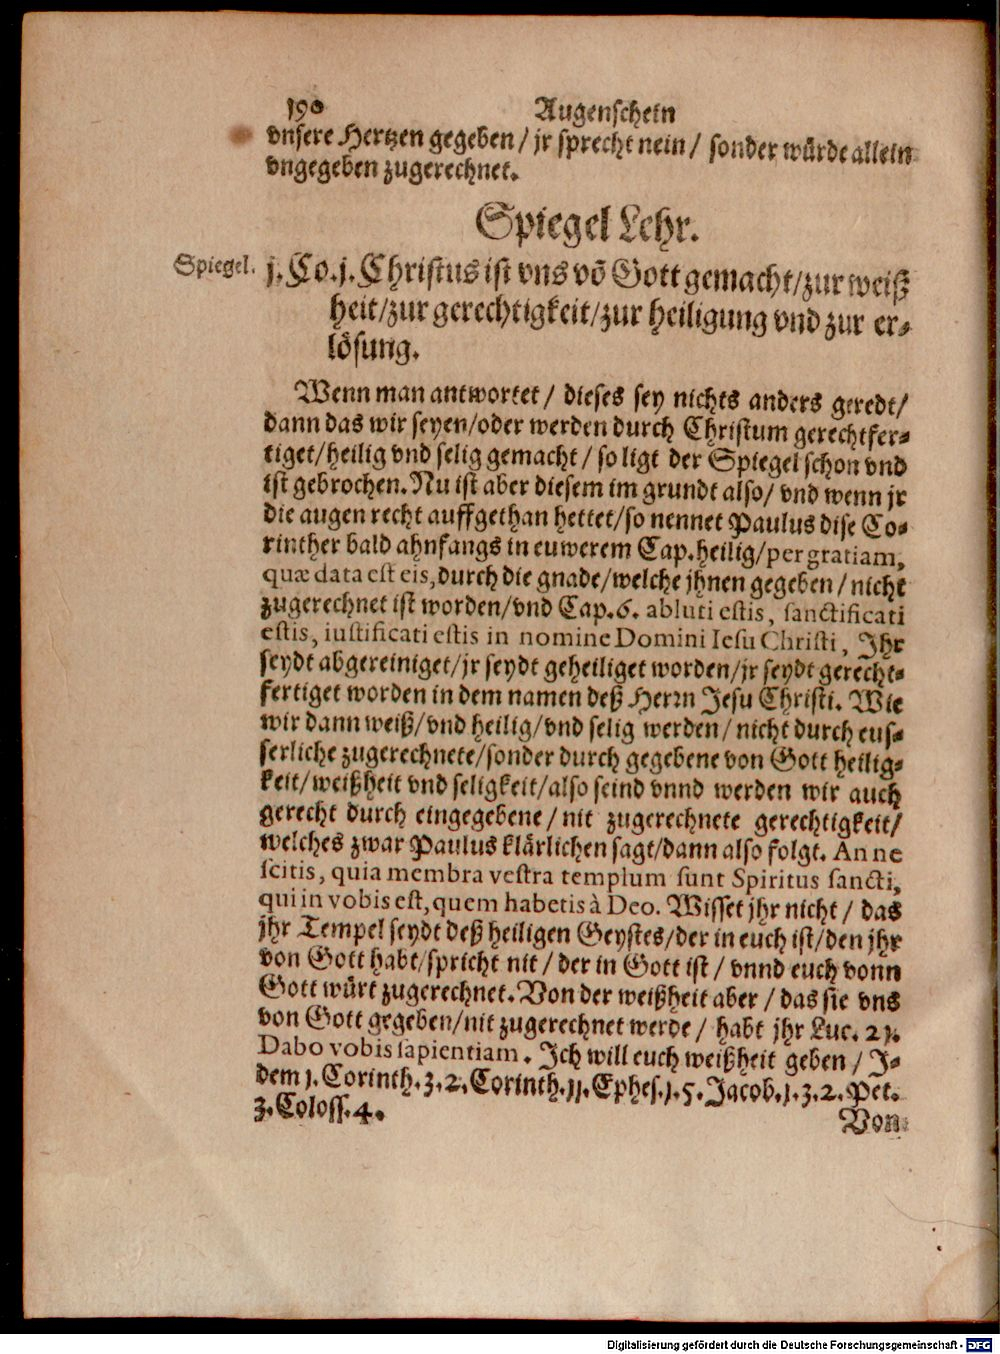 190 Augenschein
vnsere Hertzen gegeben / jr sprecht nein / sonder würde allein
vngegeben zugerechnet.
Spiegel Lehr.
Spiegel. j. Co. j. Christus ist vns võ Gott gemacht/zur weiß
heit/zur gerechtigkeit/zur heiligung vnd zur er-
lösung.
Wenn man antwortet / dieses sey nichts anders geredt/
dann das wir seyen/oder werden durch Christum gerechtfer-
tiget/heilig vnd selig gemacht / so ligt der Spiegel schon vnd
ist gebrochen. Nu ist aber diesem im grundt also/ vnd wenn jr
die augen recht auffgethan hettet/so nennet Paulus dise Co-
rinther bald ahnfangs in euwerem Cap. heilig/per gratiam,
quæ data est eis, durch die gnade/welche jhnen gegeben / nicht
zugerechnet ist worden/vnd Cap. 6. abluti estis, sanctificati
estis, iustificati estis in nomine Domini Iesu Christi, Ihr
seydt abgereiniget/jr seydt geheiliget worden/jr seydt gerecht-
fertiget worden in dem namen deß Herrn Jesu Christi. Wie
wir dann weiß/vnd heilig/vnd selig werden / nicht durch eus-
serliche zugerechnete/sonder durch gegebene von Gott heilig-
keit/weißheit vnd seligkeit/also seind vnnd werden wir auch
gerecht durch eingegebene / nit zugerechnete gerechtigkeit/
welches zwar Paulus klärlichen sagt/dann also folgt. An ne
scitis, quia membra vestra templum sunt Spiritus sancti,
qui in vobis est, quem habetis à Deo. Wisset jhr nicht / das
jhr Tempel seydt deß heiligen Geystes/der in euch ist/den jhr
von Gott habt/spricht nit / der in Gott ist / vnnd euch vonn
Gott würt zugerechnet. Von der weißheit aber / das sie vns
von Gott gegeben/nit zugerechnet werde / habt jhr Luc. 2j.
Dabo vobis sapientiam. Ich will euch weißheit geben / I-
dem j. Corinth. 3. 2. Corinth. jj. Ephes. j. 5. Jacob. j. 3. 2. Pet.
3. Coloss. 4.
Von
Digitalisierung gefördert durch die Deutsche Forschungsgemeinschaft - DFG